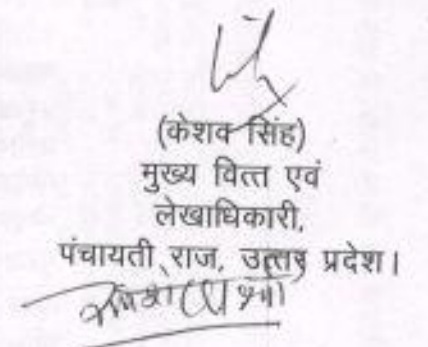 (केशव सिंह)
मुख्य वित्त एवं
लेखाधिकारी,
पंचायती राज, उत्तर प्रदेश।